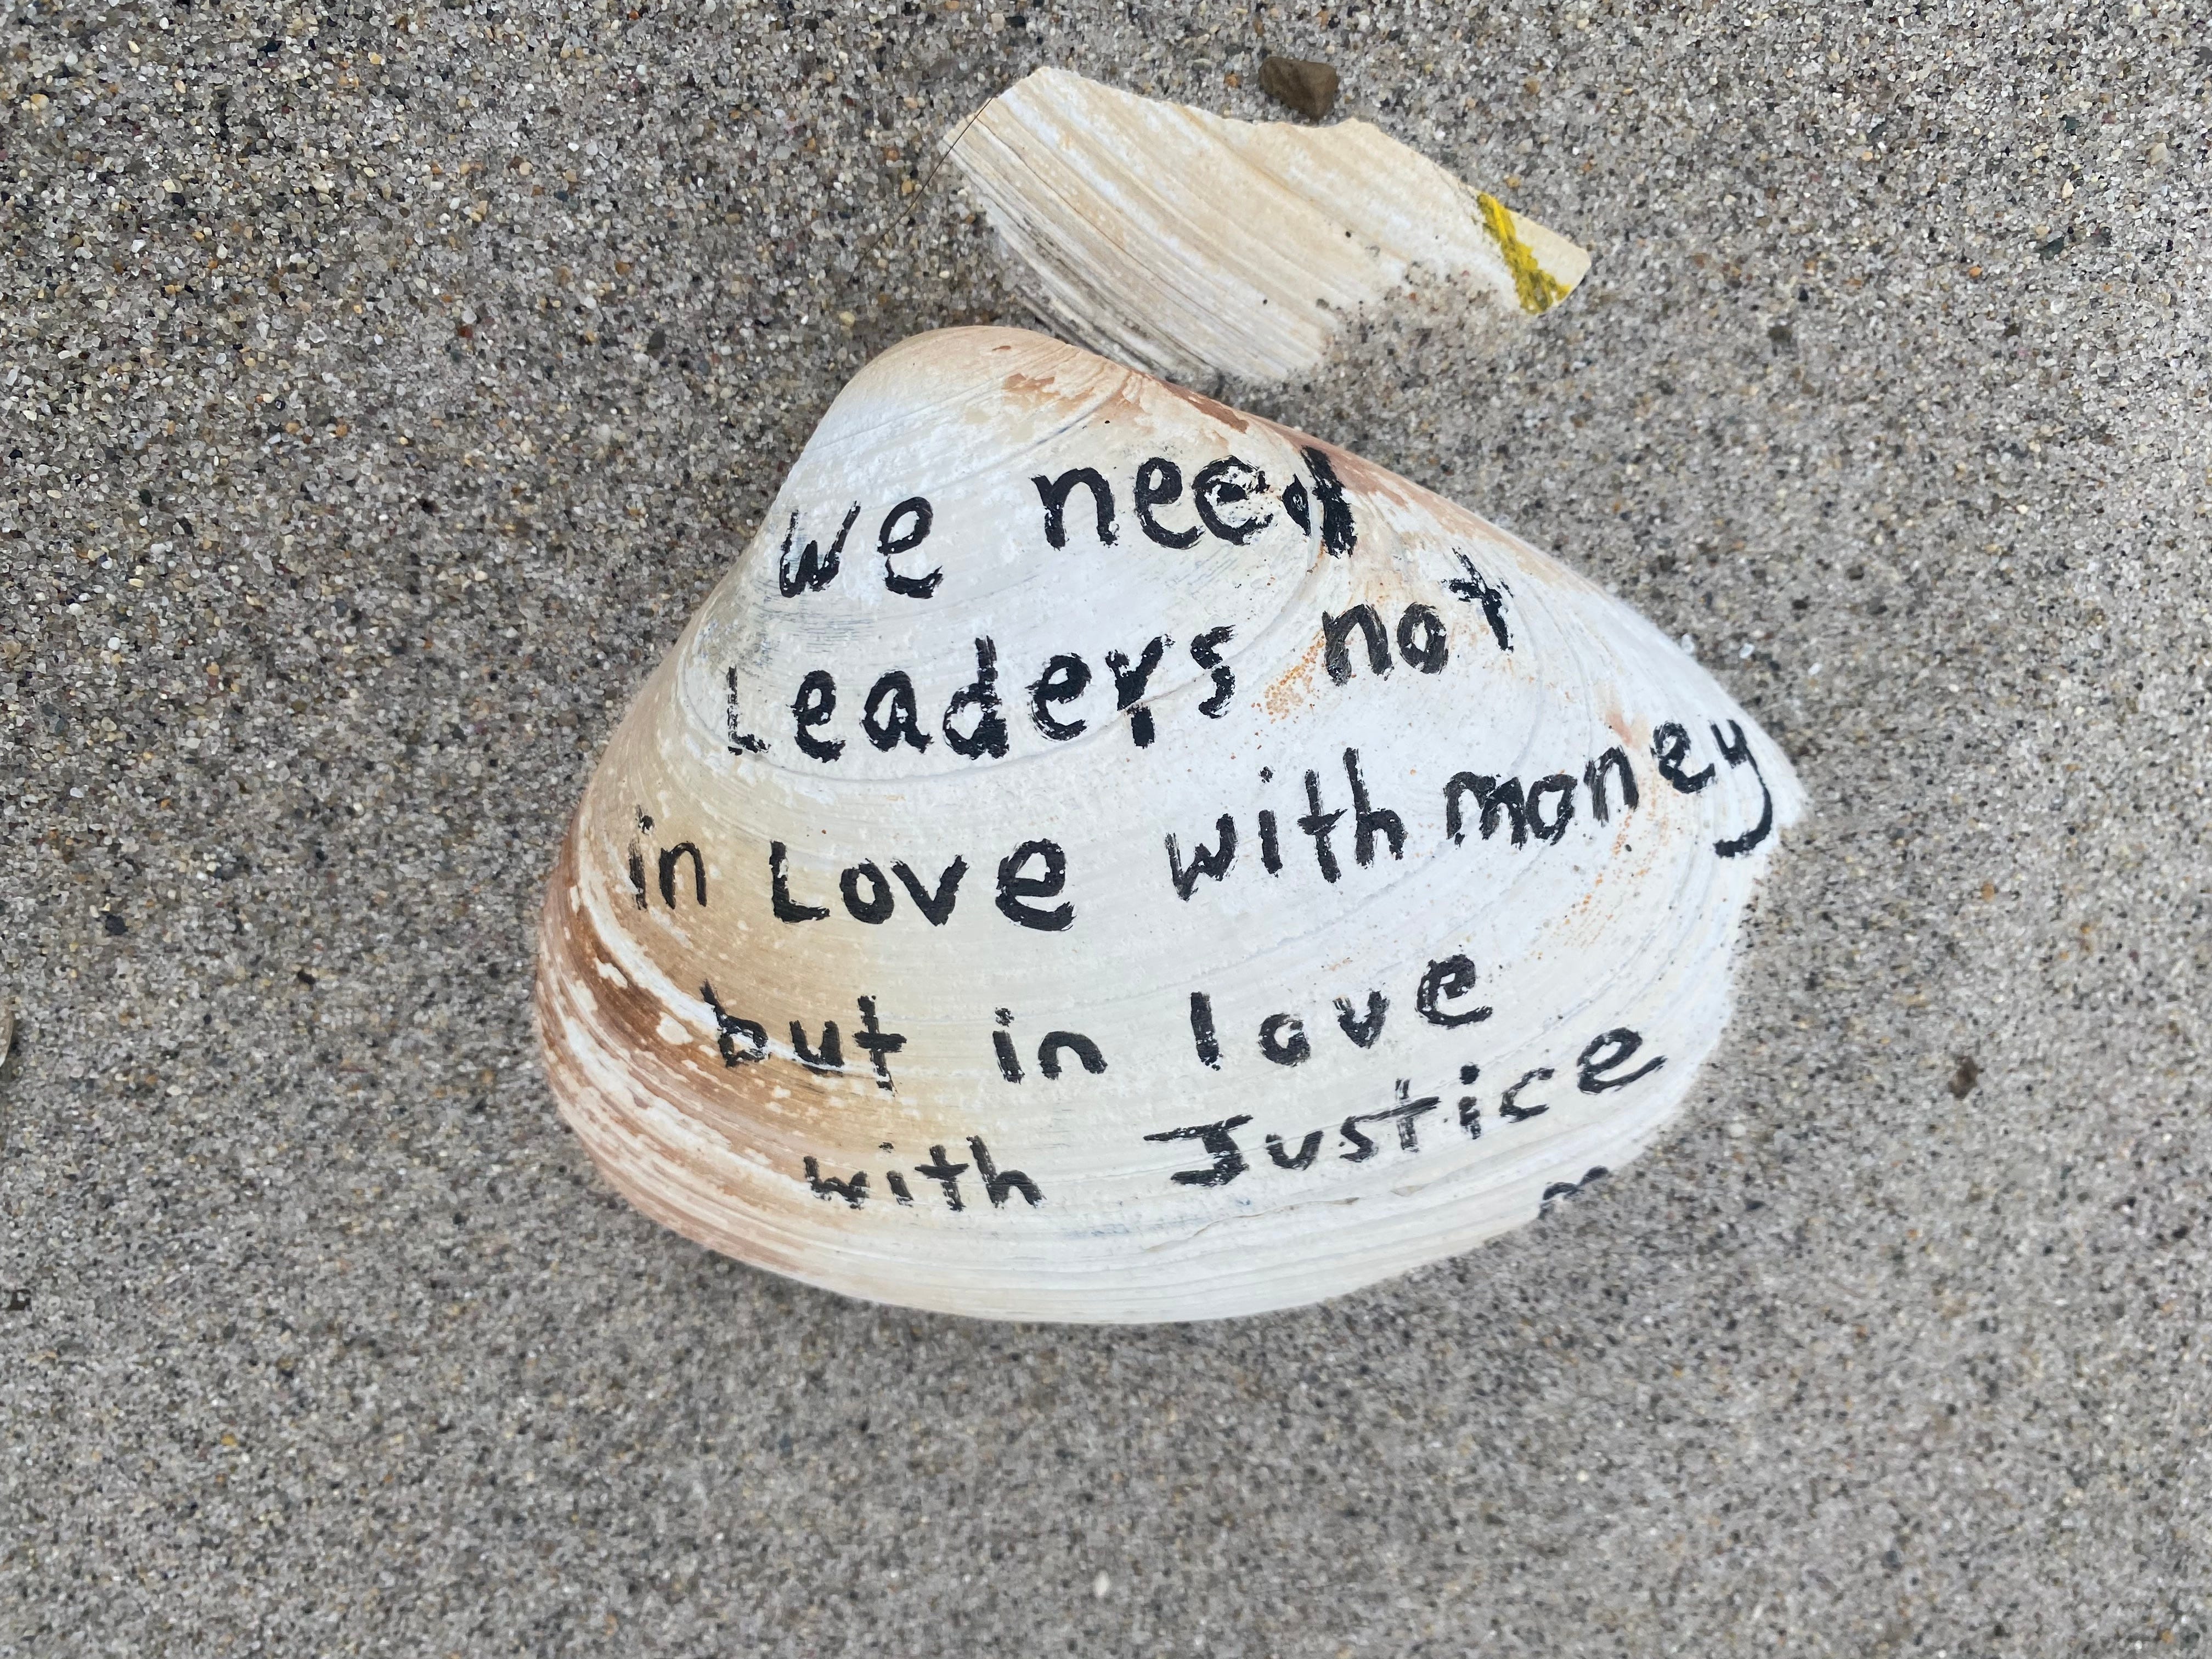 we need
Leaders not
in Love with money
but in love
with Justice